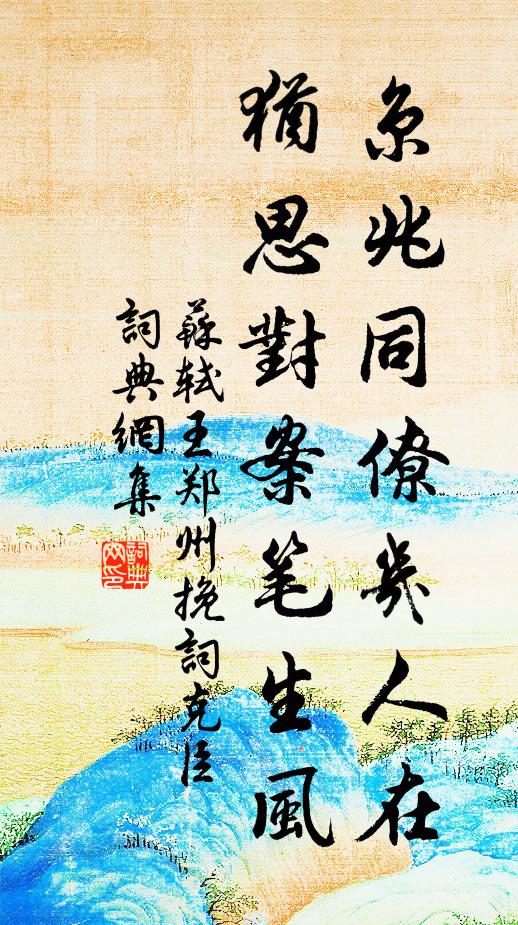 京兆同僚幾人在
猶思對案笔生風
蘇轼王郑州挽詞克臣
詞典網集
詞典網印